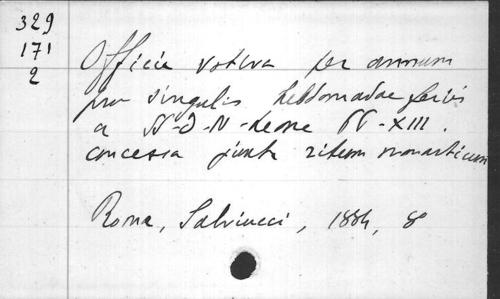 329
171
2
Officia votiva per annum
pro singulis hebdomadae feriis
a SS-D-N-Leone PP-XIII.
concessa juxta ritum monasticum
Roma, Salviucci, 1884, 8º